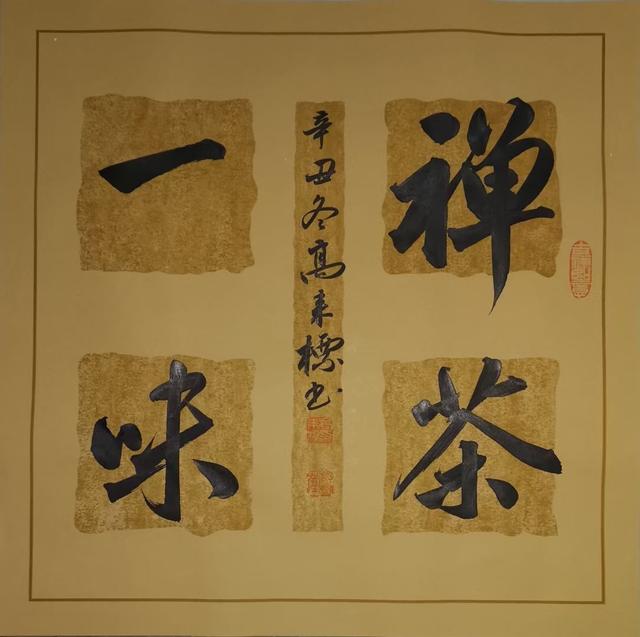 禅茶
一味
辛丑冬高来标书